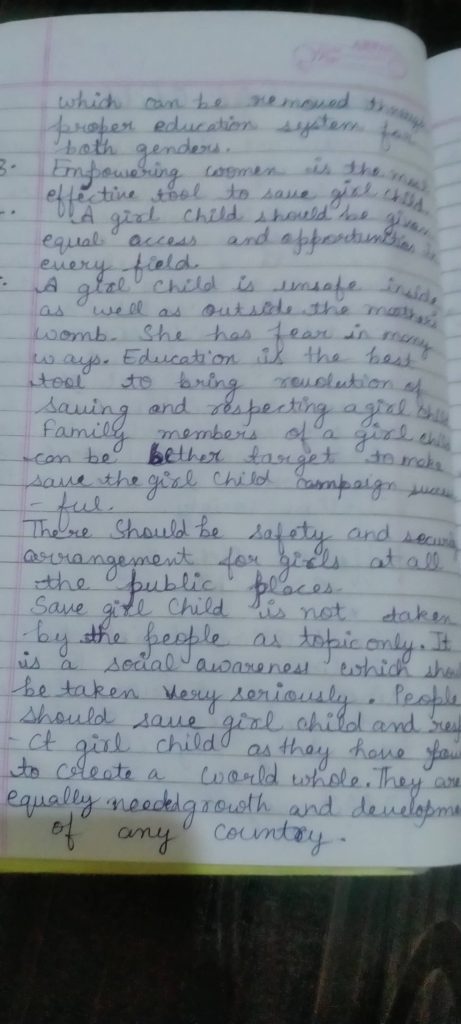 which can be removed through
proper education system for
both genders.
3. Empowering women is the most
effective tool to save girl child.
A girl child should be given
equal access and opportunities in
every field.
A girl child is unsafe inside
as well as outside the mother's
womb. She has fear in many
ways. Education is the best
tool to bring revolution of
saving and respecting a girl child
Family members of a girl child
can be better target to make
save the girl child campaign success
- ful.
There should be safety and security
arrangement for girls at all
the public places.
Save girl child is not taken
by the people as topic only. It
is a social awareness which shou
be taken very seriously. People
should save girl child and resp
- ct girl child as they have
to create a world whole. They are
equally needed growth and developme
of any country.